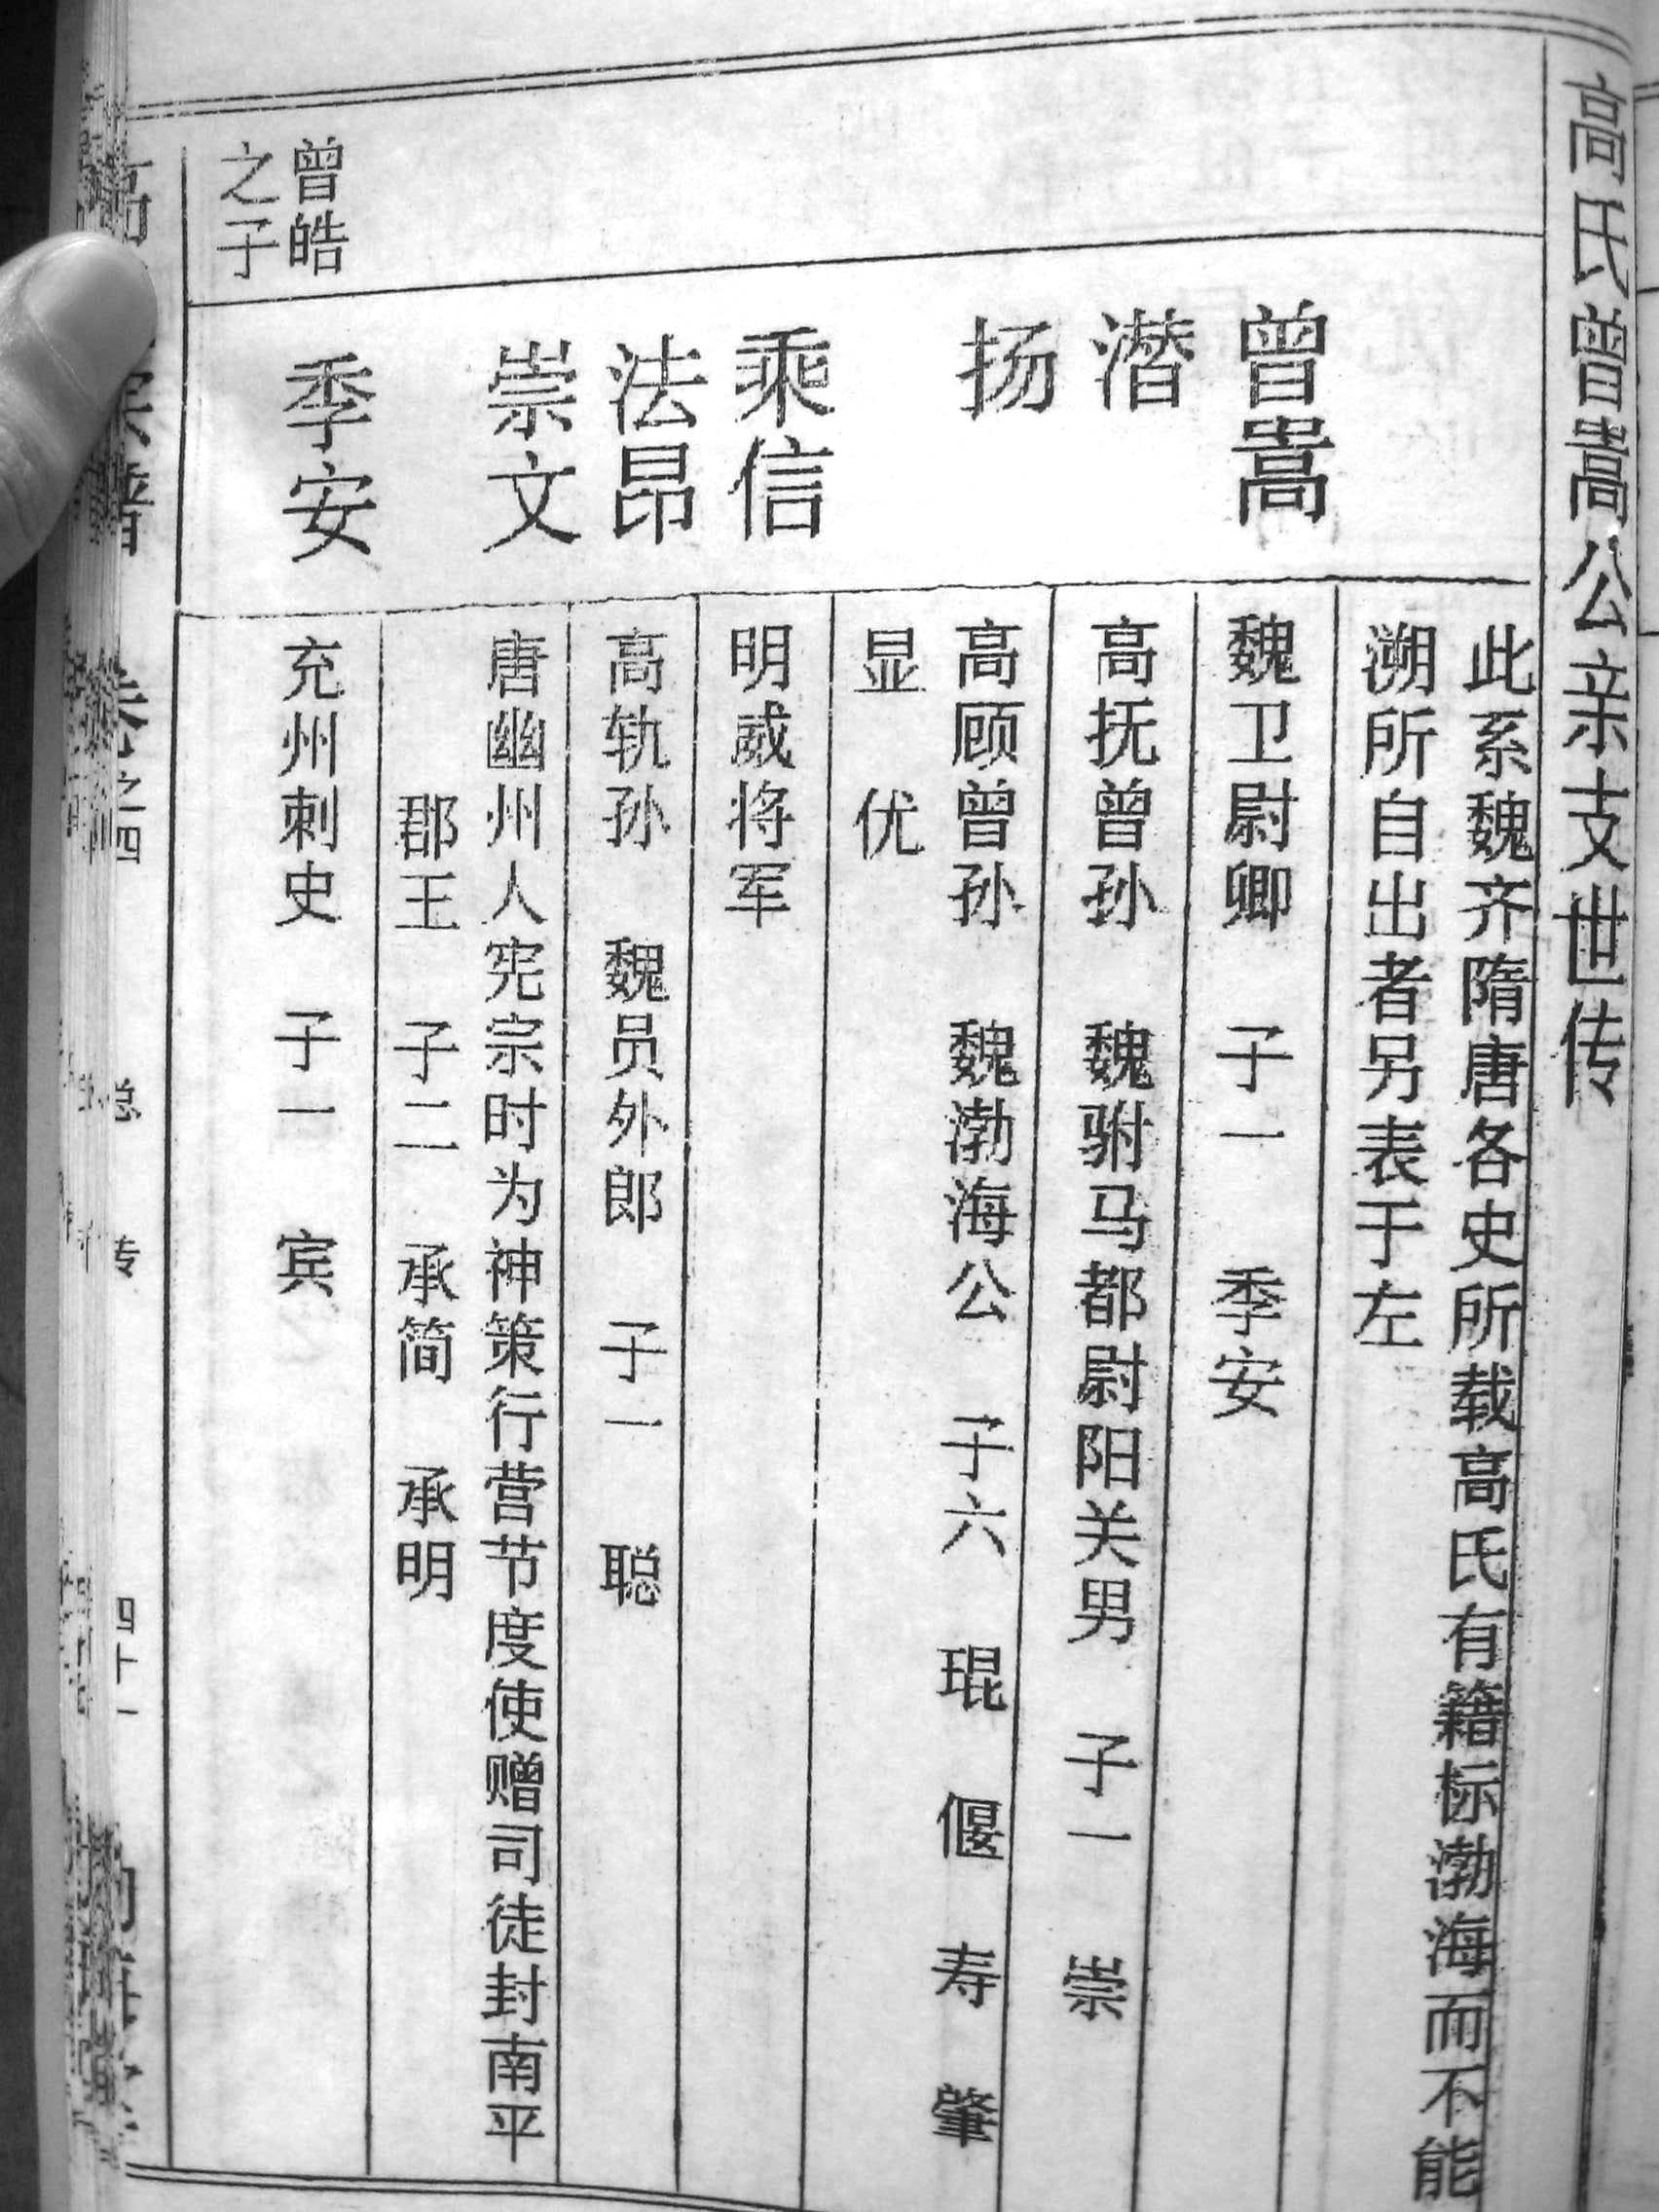 高氏曾嵩公亲支世传
此系魏齐隋唐各史所载高氏有籍标渤海而不能
溯所自出者另表于左
曾嵩
魏卫尉卿 子一 季安
潜
高抚曾孙 魏驸马都尉阳关男 子一 崇
扬
高顾曾孙 魏渤海公 子六 琨 偃 寿 肇
显 优
乘信
明威将军
法昂
高轨孙 魏员外郎 子一 聪
崇文
唐幽州人宪宗时为神策行营节度使赠司徒封南平
郡王 子二 承简 承明
曾皓
之子
季安
充州刺史 子一 宾
高 谱 卷之四 总 传 四十一